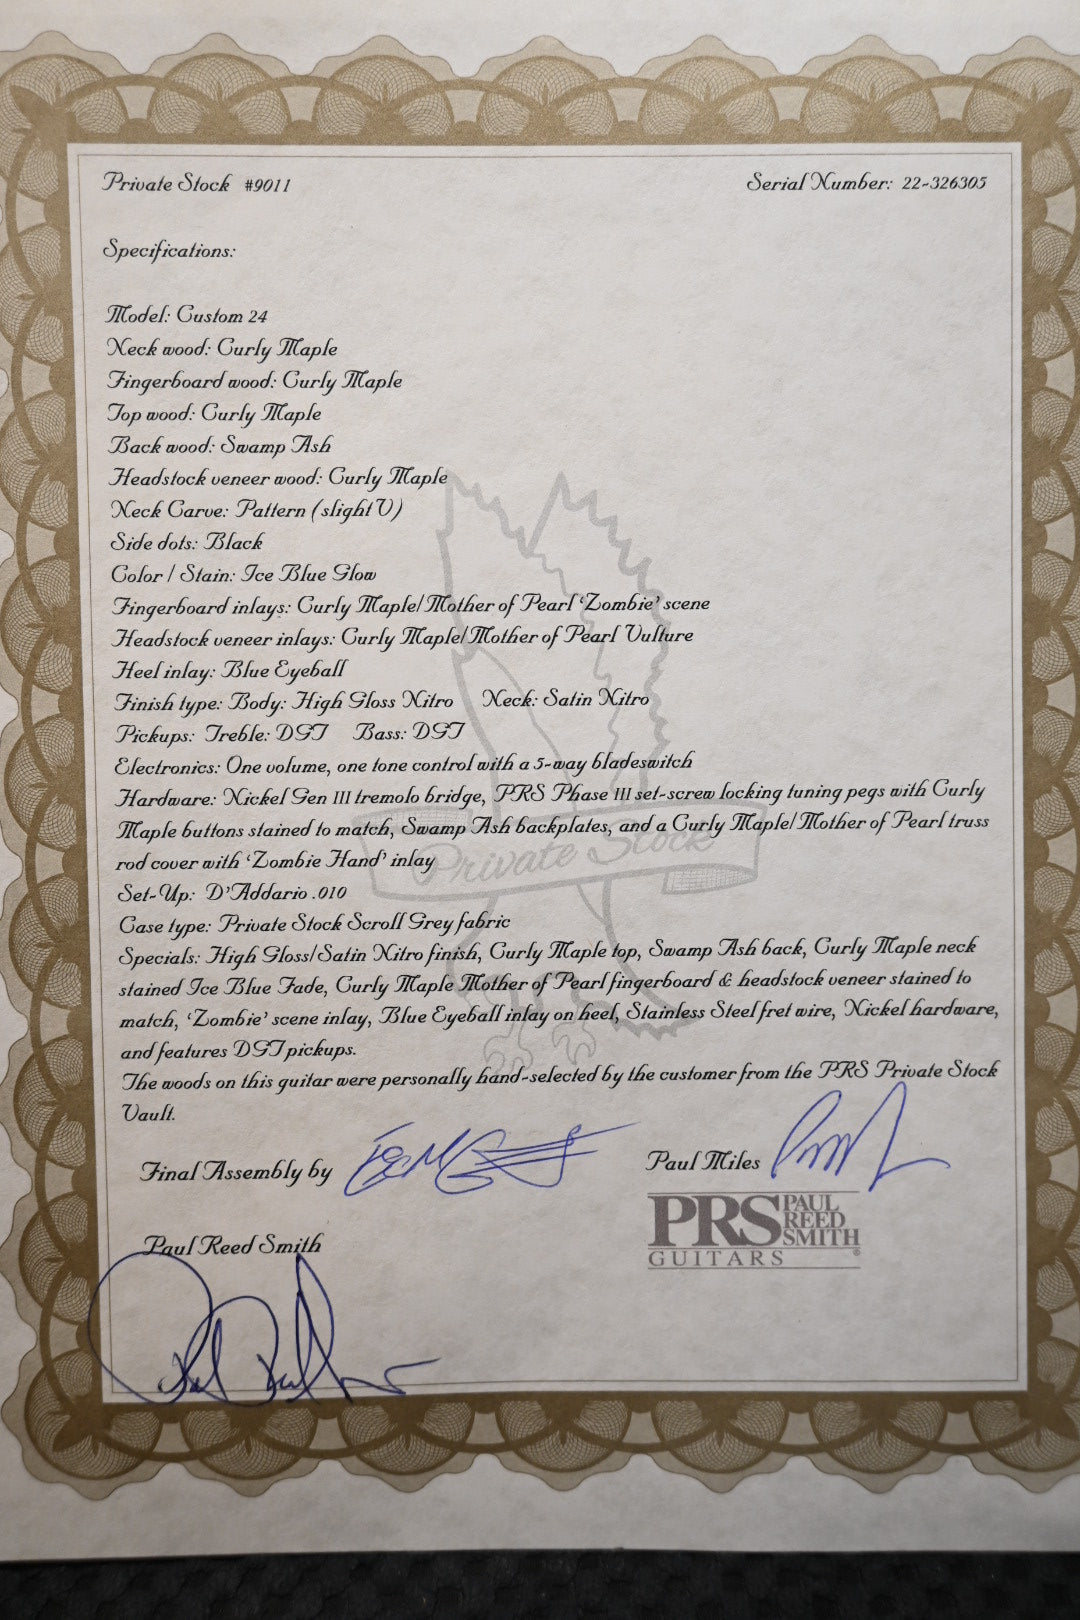 Private Stock #9011 Serial Number: 22-326305
Specifications:
Model: Custom 24
Neck wood: Curly Maple
Fingerboard wood: Curly Maple
Top wood: Curly Maple
Back wood: Swamp Ash
Headstock veneer wood: Curly Maple
Neck Carve: Pattern (slight V)
Side dots: Black
Color / Stain: Ice Blue Glow
Fingerboard inlays: Curly Maple/Mother of Pearl 'Zombie' scene
Headstock veneer inlays: Curly Maple/Mother of Pearl Vulture
Heel inlay: Blue Eyeball
Finish type: Body: High Gloss Nitro Neck: Satin Nitro
Pickups: Treble: DGT Bass: DGT
Electronics: One volume, one tone control with a 5-way bladeswitch
Hardware: Nickel Gen III tremolo bridge, PRS Phase III set-screw locking tuning pegs with Curly
Maple buttons stained to match, Swamp Ash backplates, and a Curly Maple/Mother of Pearl truss
rod cover with 'Zombie Hand' inlay
Private Stock
Set-Up: D'Addario .010
Case type: Private Stock Scroll Grey fabric
Specials: High Gloss/Satin Nitro finish, Curly Maple top, Swamp Ash back, Curly Maple neck
stained Ice Blue Fade, Curly Maple Mother of Pearl fingerboard & headstock veneer stained to
match, 'Zombie' scene inlay, Blue Eyeball inlay on heel, Stainless Steel fret wire, Nickel hardware,
and features DGT pickups.
The woods on this guitar were personally hand-selected by the customer from the PRS Private Stock
Vault.
Final Assembly by
Paul Miles
PRS PAUL REED SMITH
GUITARS ®
Paul Reed Smith